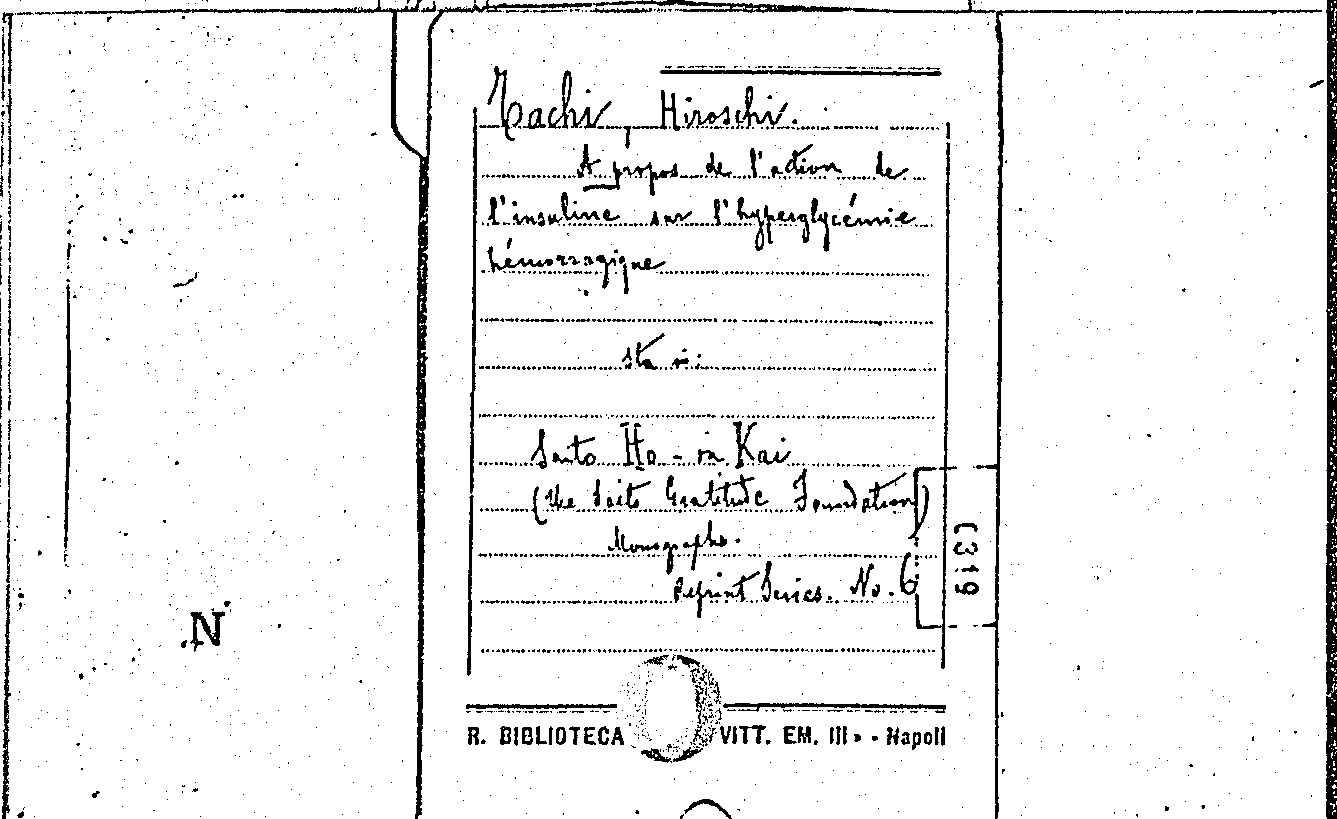 Tachi, Hiroschi.
A propos de l'action de
l'insuline sur l'hyperglycémie
hémorragique
sta in:
Saito Ho-in Kai
(The Saito Gratitude Foundation)
Monographs.
Reprint Series. No. 6
(319
N.
R. BIBLIOTECA VITT. EM. III» - Napoli